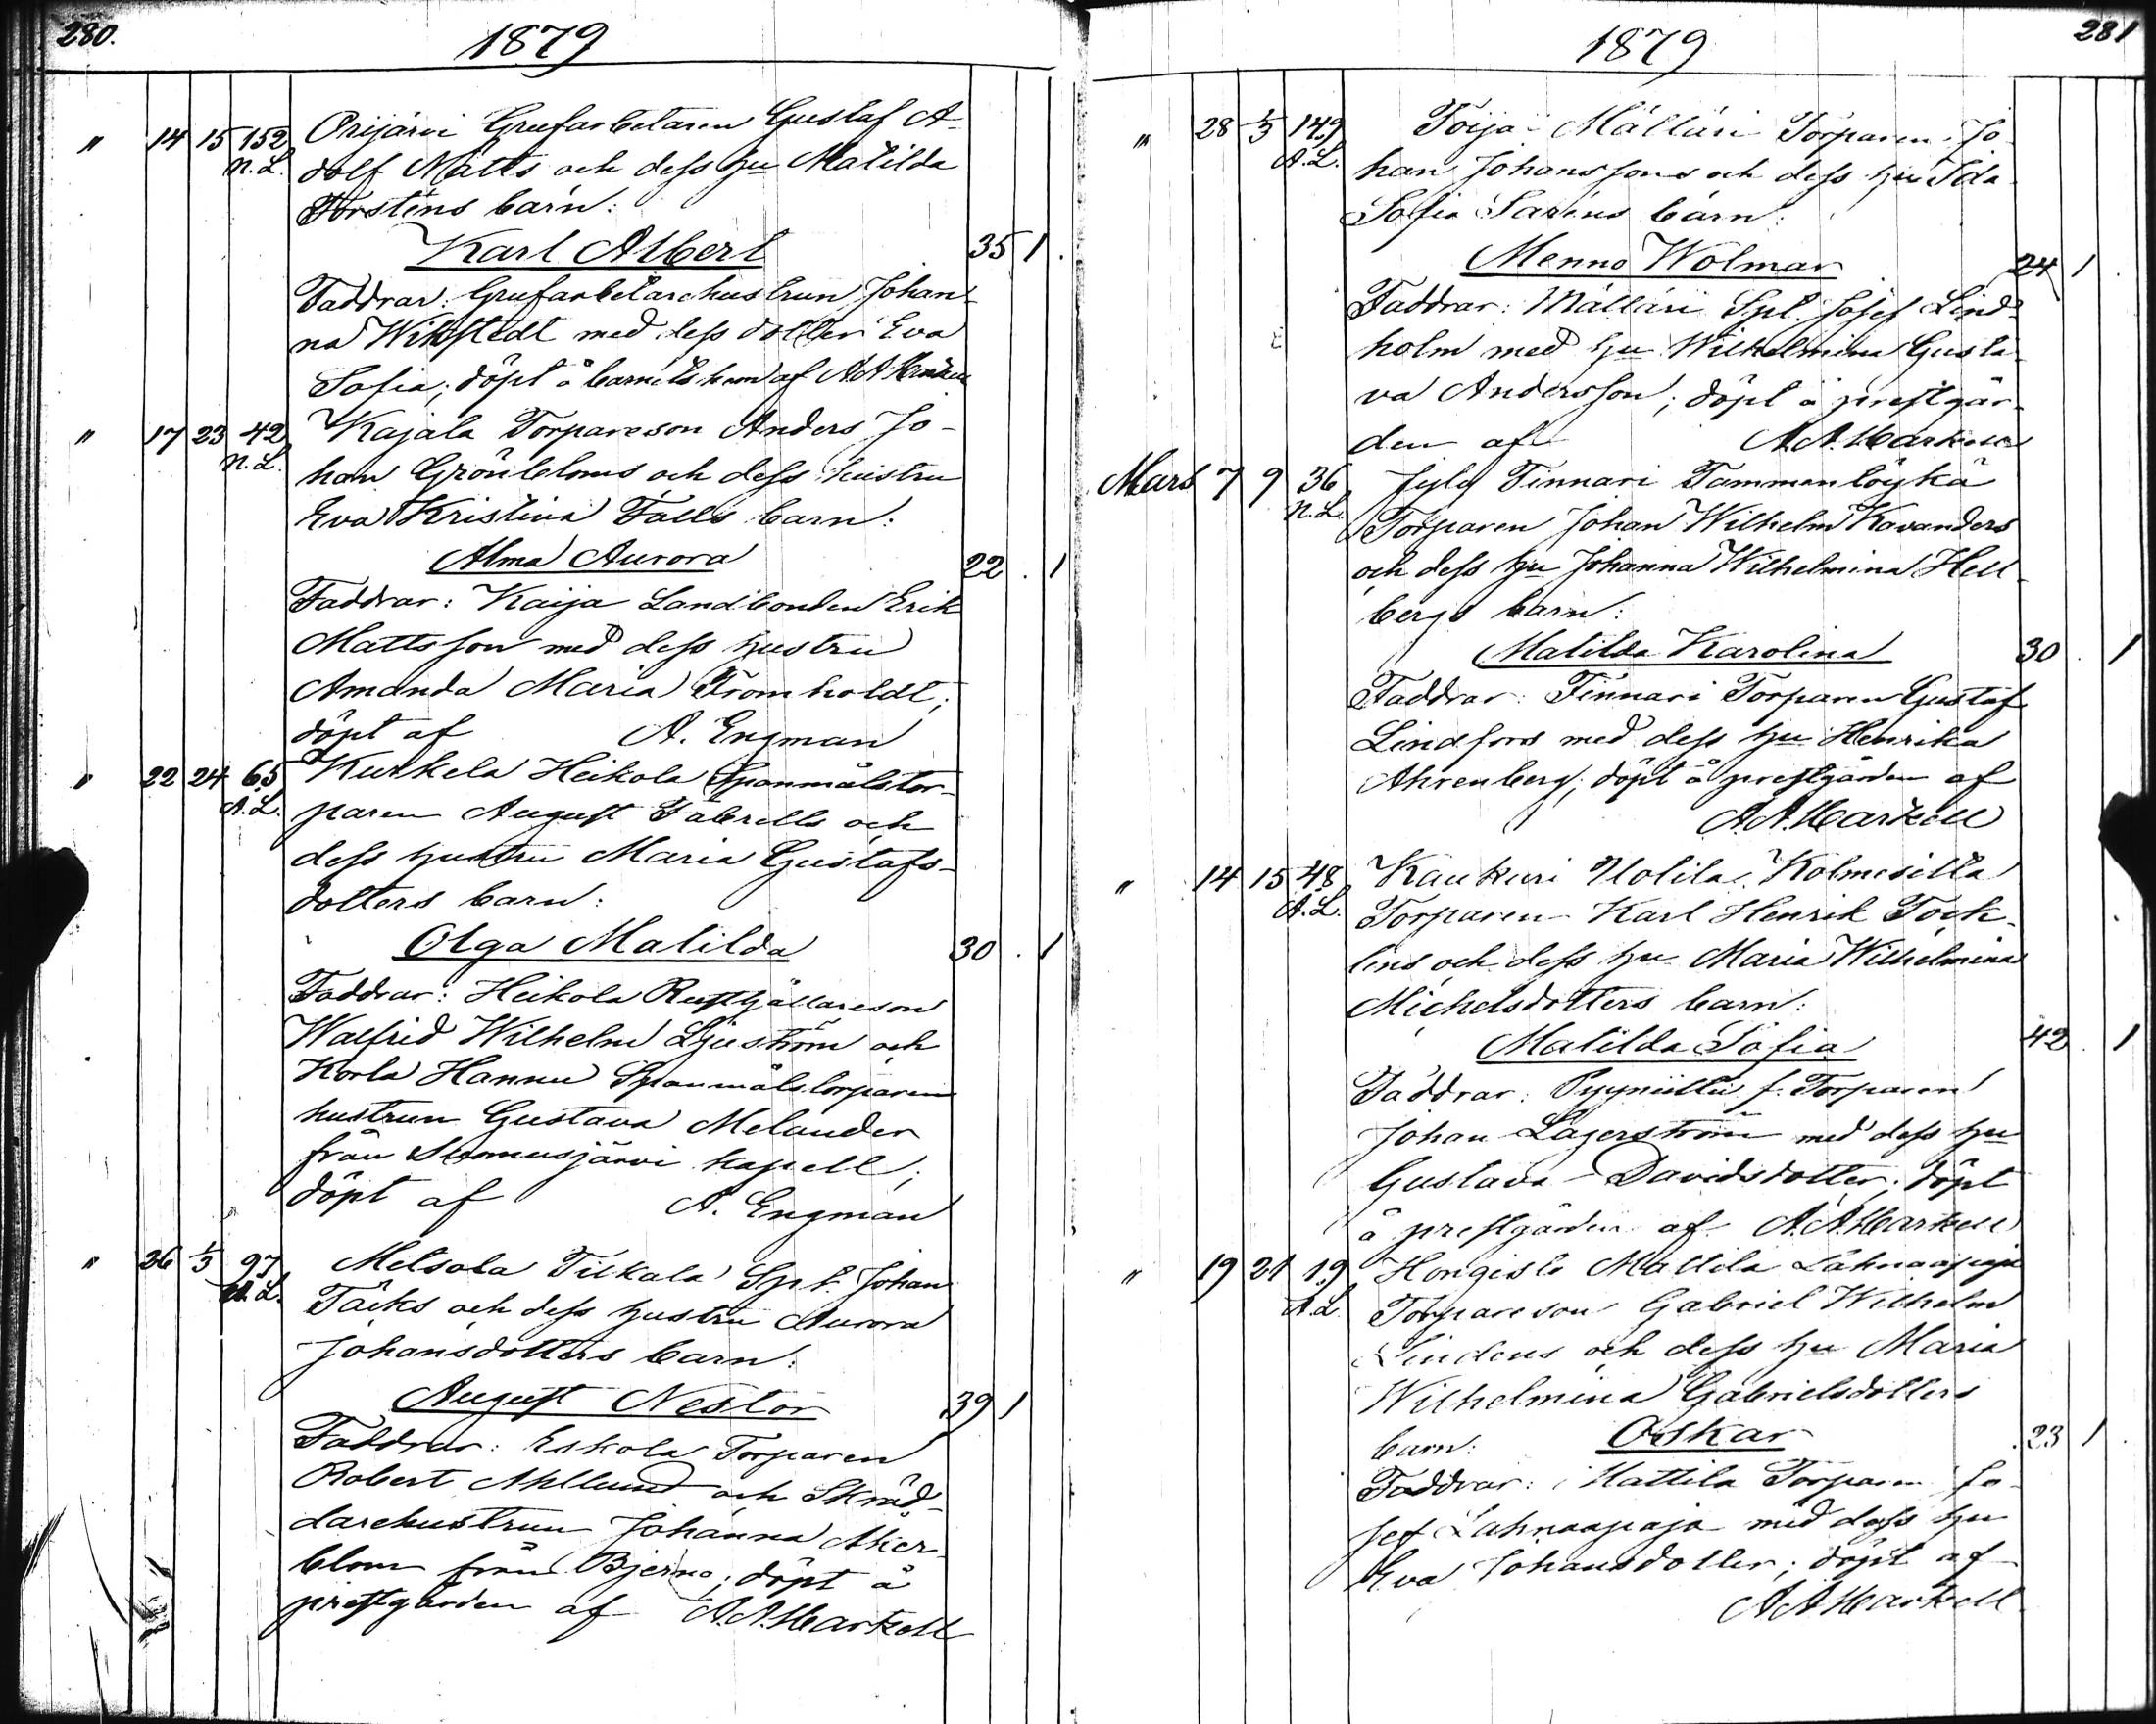 280.
1879
" 14 15 152 Orijärvi Grufarbetaren Gustaf A-
N.L. dolf Matts och dess hu Matilda
Torstens barn:
Karl Albert 35 1
Faddrar: Grufarbetarehustrun Johan-
na Wikstedt med dess dotter Eva
Sofia; döpt å barnets hem af A A Markell
" 17 23 42 Kajala Torpareson Anders Jo-
N.L. han Grönbloms och dess hustru
Eva Kristina Fälls barn:
Alma Aurora 22 . 1
Faddrar: Kaija Landbonden Erik
Mattsson med dess hustru
Amanda Maria Fromholdt;
döpt af A. Engman
" 22 24 65 Kurkela Heikola Spanmålstor-
A.L. paren August Fabrells och
dess hustru Maria Gustafs-
dotters barn:
Olga Matilda 30 . 1
Faddrar: Heikola Rusthållareson
Walfrid Wilhelm Ljuström och
Korla Hannu Spanmålstorparen
hustrun Gustava Melander
från Suomusjärvi kapell;
döpt af A. Engman
" 26 1/3 97 Metsola Tilkala Spl. Johan
A.L. Täcks och dess hustru Aurora
Johansdotters barn:
August Nestor 39 1
Faddrar: Eskola Torparen
Robert Ahllund och Skräd-
darehustrun Johanna Aker-
blom från Bjerno; döpt å
prestgården af A.A. Markell
281
1879
" 28 1/3 149 Toija Mälläri Torparen Jo-
A.L. han Johanssons och dess hu Ida
Sofia Saréns barn:
Menno Wolmar 24 1
Faddrar: Mälläri Spl. Josef Lind-
holm med hu Wilhelmina Gusta-
va Andersson; döpt å prestgår-
den af A.A. Markell
Mars 7 9 36 Jyly Finnari Tammenlöykä
N.L. Torparen Johan Wilhelm Kavanders
och dess hu Johanna Wilhelmina Hell-
bergs barn:
Matilda Karolina 30 . 1
Faddrar: Finnari Torparen Gustaf
Lindfors med dess hu Henrika
Ahrenberg; döpt å prestgården af
A.A. Markell
" 14 15 48 Kaukuri Uolila Kolmesilta
A.L. Torparen Karl Henrik Tock-
lins och dess hu Maria Wilhelmina
Michelsdotters barn:
Matilda Sofia 42 . 1
Faddrar: f. Torparen
Johan Lagerström med dess hu
Gustava Davidsdotter; döpt
å prestgården af A.A. Markell
" 19 21 19 Hongisto Mattila Lahnaapaja
A.L. Torpareson Gabriel Wilhelm
Lindens och dess hu Maria
Wilhelmina Gabrielsdotters
barn: Oskar 23 1
Faddrar: Mattila Torparen Jo-
sef Lahnaapaja med dess hu
Eva Johansdotter; döpt af
A A Markell